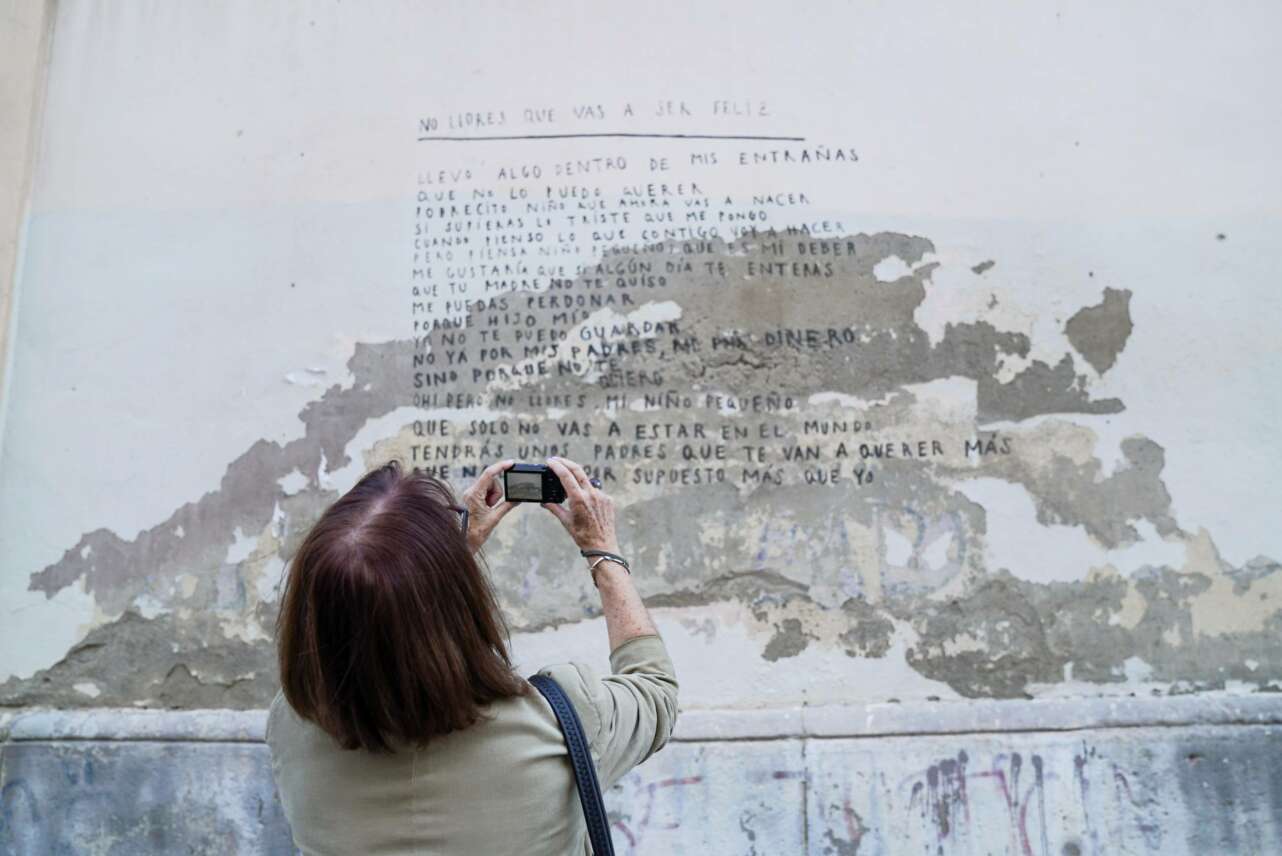 NO LLORES QUE VAS A SER FELIZ
LLEVO ALGO DENTRO DE MIS ENTRAÑAS
QUE NO LO PUEDO QUERER
POBRECITO NIÑO QUE AHORA VAS A NACER
SI SUPIERAS LO TRISTE QUE ME PONGO
CUANDO PIENSO LO QUE CONTIGO VOY A HACER
PERO PIENSA NIÑO PEQUEÑO, QUE ES MI DEBER
ME GUSTARÍA QUE SI ALGÚN DÍA TE ENTERAS
QUE TU MADRE NO TE QUISO
ME PUEDAS PERDONAR
PORQUE HIJO MÍO
YO NO TE PUEDO GUARDAR
NO YA POR MIS PADRES, NI POR DINERO
SINO PORQUE NO TE
QUIERO
OH! PERO NO LLORES MI NIÑO PEQUEÑO
QUE SOLO NO VAS A ESTAR EN EL MUNDO
TENDRÁS UNOS PADRES QUE TE VAN A QUERER MÁS
QUE POR SUPUESTO MÁS QUE YO